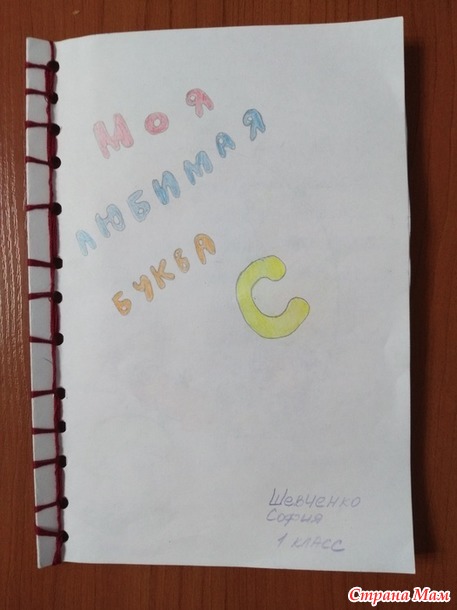 Моя
ЛЮБИМАЯ
БУКВА
С
Шевченко
София
1 класс
Страна Мам